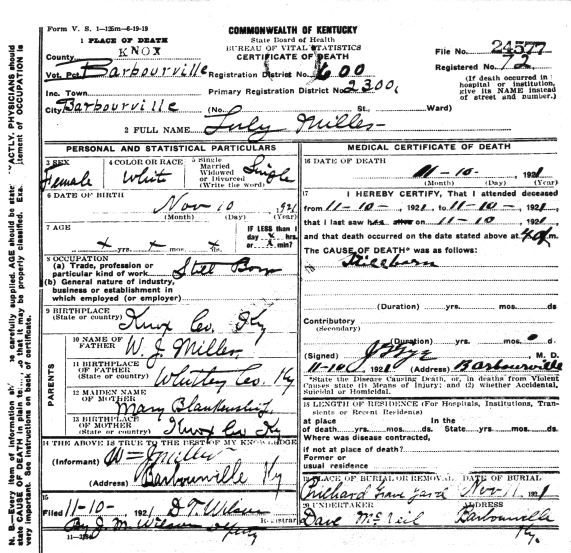 Form V. S. 1-125m-6-19-19
COMMONWEALTH OF KENTUCKY
State Board of Health
BUREAU OF VITAL STATISTICS
CERTIFICATE OF DEATH
1 PLACE OF DEATH
County KNOX
Vot. Pct. Barbourville
Inc. Town
City Barbourville
Registration District No. 600
Primary Registration District No. 2300
File No. 24577
Registered No. 72
(If death occurred in hospital or institution, give its NAME instead of street and number.)
(No. St., Ward)
2 FULL NAME Miller
PERSONAL AND STATISTICAL PARTICULARS
3 SEX
Female
4 COLOR OR RACE
White
5 Single
Married
Widowed
or Divorced
(Write the word)
Single
6 DATE OF BIRTH
Nov 10 1921
(Month) (Day) (Year)
7 AGE
x yrs. x mos. ds.
IF LESS than 1
day x hrs.
or x min?
8 OCCUPATION
(a) Trade, profession or
particular kind of work Still Born
(b) General nature of industry,
business or establishment in
which employed (or employer)
9 BIRTHPLACE
(State or country) Knox Co. Ky
PARENTS
10 NAME OF
FATHER W. J. Miller
11 BIRTHPLACE
OF FATHER
(State or country) Whitley Co. Ky
12 MAIDEN NAME
OF MOTHER Mary
13 BIRTHPLACE
OF MOTHER
(State or country) Knox Co Ky
14 THE ABOVE IS TRUE TO THE BEST OF MY KNOWLEDGE
(Informant) W J Miller
(Address) Barbourville Ky
15
Filed 11-10-, 1921 D T Wilson
By J. M. Wilson Registrar
MEDICAL CERTIFICATE OF DEATH
16 DATE OF DEATH
11-10-, 1921
(Month) (Day) (Year)
17 I HEREBY CERTIFY, That I attended deceased
from 11-10-, 1921, to 11-10-, 1921
that I last saw on 11-10-, 1921,
and that death occurred on the date stated above at m.
The CAUSE OF DEATH* was as follows:
Stillborn
(Duration) yrs. mos. ds.
Contributory
(Secondary)
(Duration) yrs. mos. 0 ds.
(Signed) M. D.
11-10, 1921 (Address) Barbourville
*State the Disease Causing Death, or, in deaths from Violent
Causes state (1) Means of Injury; and (2) whether Accidental,
Suicidal or Homicidal.
18 LENGTH OF RESIDENCE (For Hospitals, Institutions, Tran-
sients or Recent Residents)
at place In the
of death yrs. mos. ds. State yrs. mos. ds.
Where was disease contracted,
if not at place of death?
Former or
usual residence
19 PLACE OF BURIAL OR REMOVAL DATE OF BURIAL
Grave Yard Nov 11, 1921
20 UNDERTAKER ADDRESS
Dave McNeil Barbourville
Ky.
N. B.-Every item of information
carefully supplied. AGE should be state
EXACTLY. PHYSICIANS should
state CAUSE OF DEATH in plain
so that it may be properly classified. Exa
statement of OCCUPATION
very important. See instructions on back of certificate.